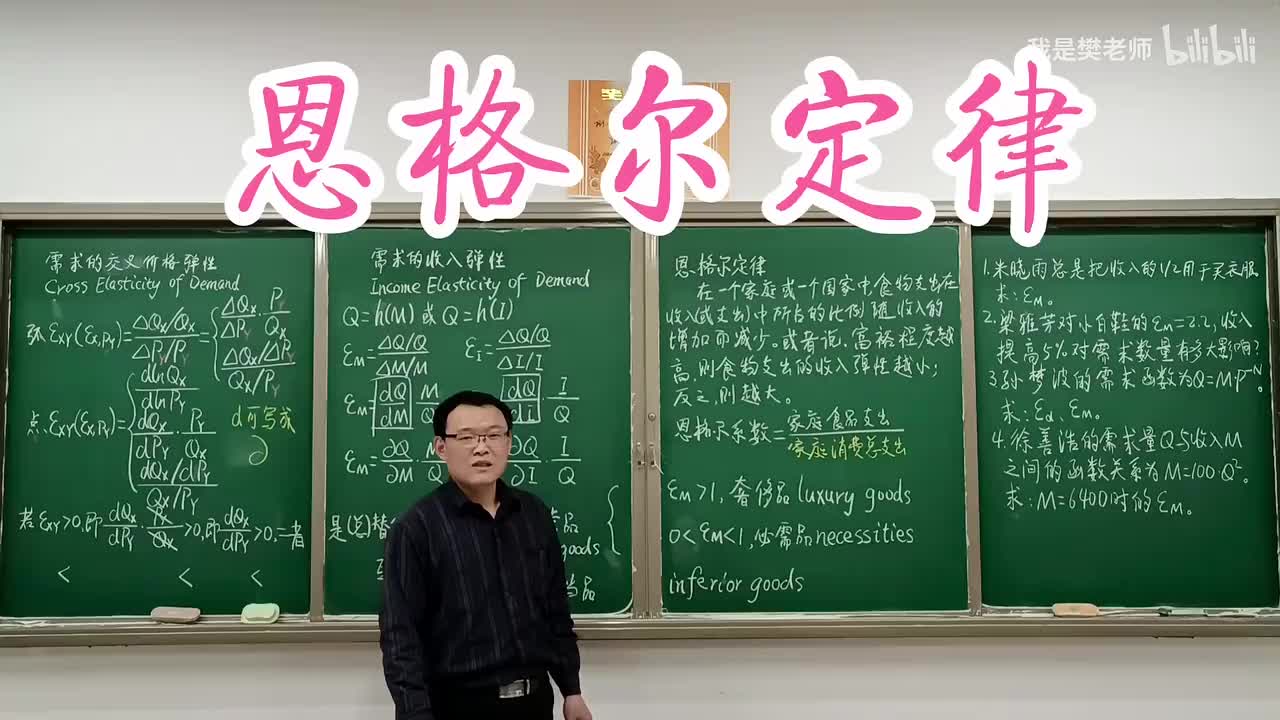 我是樊老师 bilibili
恩格尔定律
需求的交叉价格弹性
Cross Elasticity of Demand
弧 εXY(EX,PY)=(ΔQX/QX)/(ΔPY/PY)={ΔQX/ΔPY·PY/QX
(ΔQX/ΔPY)/(QX/PY)
点 εXY(EX,PY)={dlnQX/dlnPY
dQX/dPY·PY/QX
(dQX/dPY)/(QX/PY)
d可写成
∂
若εXY>0,即dQX/dPY·PY/QX>0,即dQX/dPY>0,二者
< < <
需求的收入弹性
Income Elasticity of Demand
Q=h(M)或Q=h(I)
εM=(ΔQ/Q)/(ΔM/M) εI=(ΔQ/Q)/(ΔI/I)
εM=dQ/dM·M/Q dQ/di·I/Q
εM=∂Q/∂M·M ∂Q/∂I·I/Q
是(总)替 品
goods
品
恩格尔定律
在一个家庭或一个国家中,食物支出在
收入(或支出)中所占的比例随收入的
增加而减少。或者说,富裕程度越
高,则食物支出的收入弹性越小;
反之,则越大。
恩格尔系数=家庭食品支出/家庭消费总支出
εM>1,奢侈品luxury goods
0<εM<1,必需品necessities
inferior goods
1.朱晓雨总是把收入的1/2用于买衣服
求:εM。
2.梁雅芳对小白鞋的εM=2.2,收入
提高5%对需求数量有多大影响?
3.孙梦波的需求函数为Q=MP^-N。
求:εd、εM。
4.徐善浩的需求量Q与收入M
之间的函数关系为M=100·Q²。
求:M=6400时的εM。